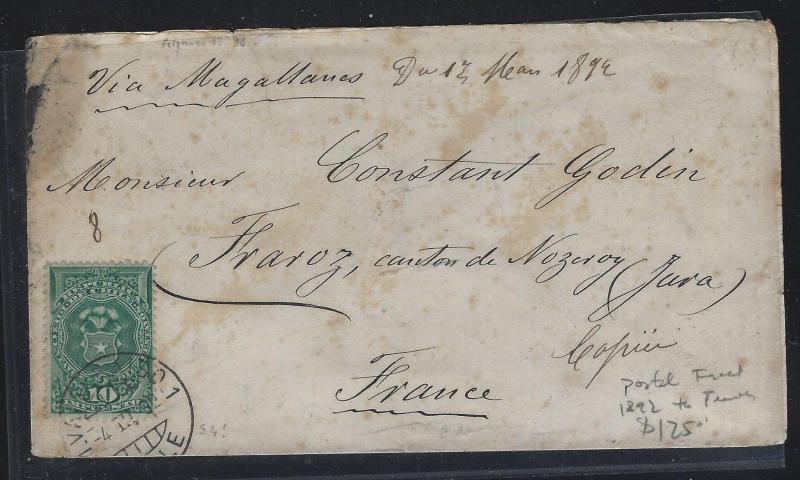 Via Magallanes Du 12 Mars 1892
Monsieur Constant Godin
8
Fraroz, canton de Nozeroy (Jura)
Copiée
France
postal Fiscal
1892 to France
$125
10